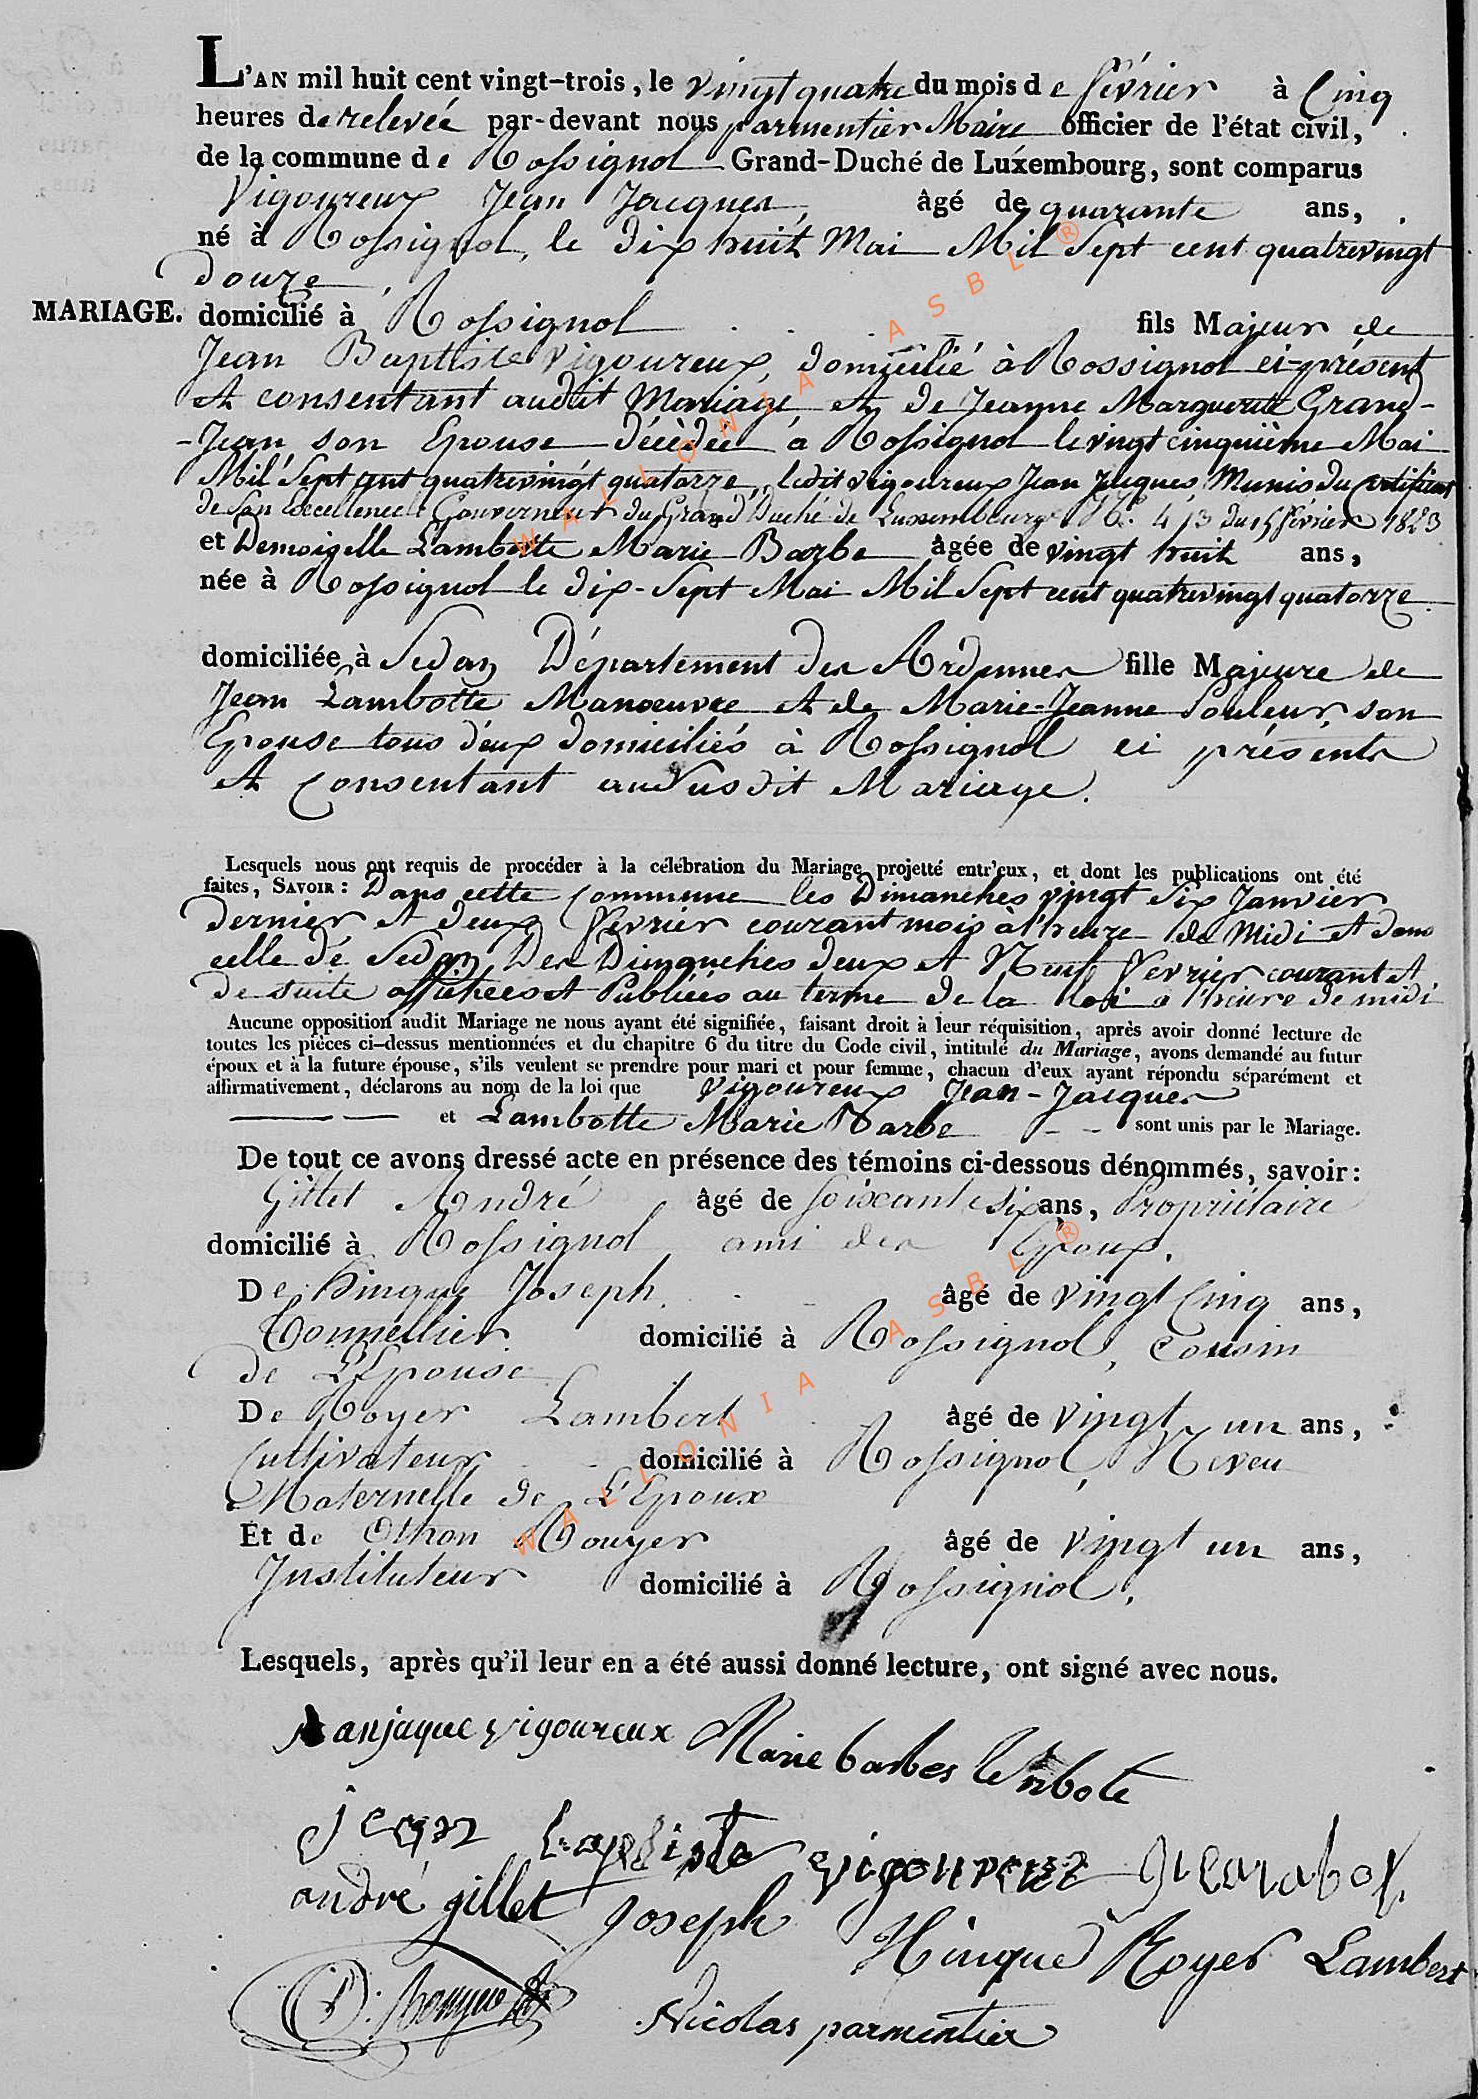 L'AN mil huit cent vingt-trois, le vingt quatre du mois de février à Cinq
heures de relevée par-devant nous parmentier Maire officier de l'état civil,
de la commune de Rossignol Grand-Duché de Luxembourg, sont comparus
Vigoureux Jean Jacques, âgé de quarante ans,
né à Rossignol, le dix huit Mai Mil Sept cent quatrevingt
douze,
MARIAGE. domicilié à Rossignol fils Majeur de
Jean Baptiste Vigoureux, domicilié à Rossignol ci-présent
et consentant audit Mariage et de Jeanne Marguerite Grand-
-Jean, son Epouse décédée à Rossignol le vingt cinquième Mai
Mil Sept cent quatrevingt quatorze, ledit vigoureux Jean Jacques Munis du Certificat
de Son Excellence le Gouverneur du Grand Duché de Luxembourg No. 413 du 15 février 1823
et Demoiselle Lambotte Marie Barbe âgée de vingt huit ans,
née à Rossignol le dix-Sept Mai Mil Sept cent quatrevingt quatorze
domiciliée à Sedan Département des Ardennes fille Majeure de
Jean Lambotte Manoeuvre et de Marie-Jeanne Pouleur, son
Epouse tous deux domiciliés à Rossignol ci présents
et Consentant au susdit Mariage.
Lesquels nous ont requis de procéder à la célébration du Mariage projetté entr'eux, et dont les publications ont été
faites, SAVOIR : Dans cette Commune les Dimanches vingt six Janvier
dernier et deux Février courant mois à l'heure de Midi et dans
celle de Sedan Des Dimanches deux et Neuf Février courant et
de suite affichées et Publiées au terme de la Loi a l'heure de midi
Aucune opposition audit Mariage ne nous ayant été signifiée, faisant droit à leur réquisition, après avoir donné lecture de
toutes les pièces ci-dessus mentionnées et du chapitre 6 du titre du Code civil, intitulé du Mariage, avons demandé au futur
époux et à la future épouse, s'ils veulent se prendre pour mari et pour femme, chacun d'eux ayant répondu séparément et
affirmativement, déclarons au nom de la loi que Vigoureux Jean-Jacques
et Lambotte Marie Barbe sont unis par le Mariage.
De tout ce avons dressé acte en présence des témoins ci-dessous dénommés, savoir :
Gillet André âgé de Soixante six ans, Propriétaire
domicilié à Rossignol ami des Epoux.
De Hinque Joseph, âgé de vingt Cinq ans,
Tonnellier domicilié à Rossignol, Cousin
de L'Epouse
De Royer Lambert âgé de vingt un ans,
Cultivateur domicilié à Rossignol, Neveu
Maternelle de L'Epoux
Et de Othon Rouyer âgé de vingt un ans,
Instituteur domicilié à Rossignol.
Lesquels, après qu'il leur en a été aussi donné lecture, ont signé avec nous.
Janjaque vigoureux Marie barbes lambote
jean baptiste vigoureux
andré gillet Joseph Hinque Royer Lambert
Nicolas parmentier
WALLONIA ASBL ®
WALLONIA ASBL ®